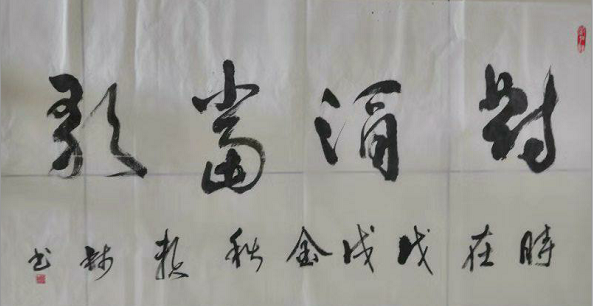 對酒當歌
時在戊戌金秋 书